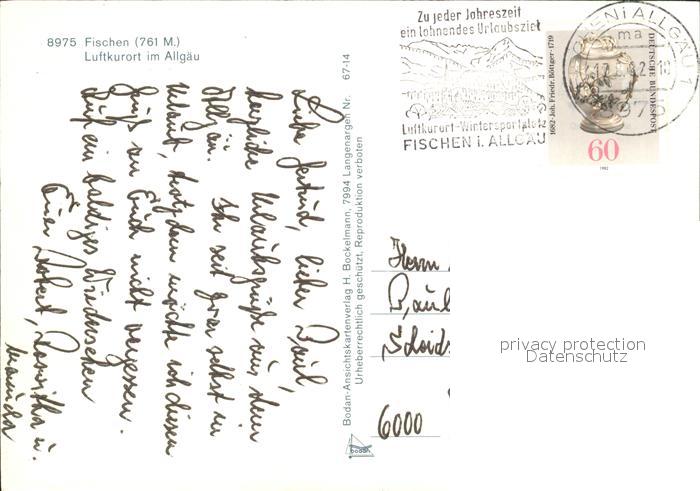 8975 Fischen (761 M.)
Luftkurort im Allgäu
Zu jeder Jahreszeit
ein lohnendes Urlaubsziel
Luftkurort-Wintersportplatz
FISCHEN i. ALLGÄU
FISCHEN i. ALLGÄU 1
ma
8975
DEUTSCHE BUNDESPOST
1682·Joh. Friedr. Böttger·1719
60
1982
Liebe Gertrud, lieber Paul,
herzliche Urlaubsgrüße aus dem
Allgäu. Ihr seit zwar selbst in
Urlaub, trotzdem möchte ich diesen
Gruß an Euch nicht vergessen.
Auf ein baldiges Wiedersehen
Euer Robert, Roswitha u.
Manuela
Bodan-Ansichtskartenverlag H. Bockelmann, 7994 Langenargen Nr. 67-14
Urheberrechtlich geschützt, Reproduktion verboten
bodan
Herrn
Paul
6000
privacy protection
Datenschutz